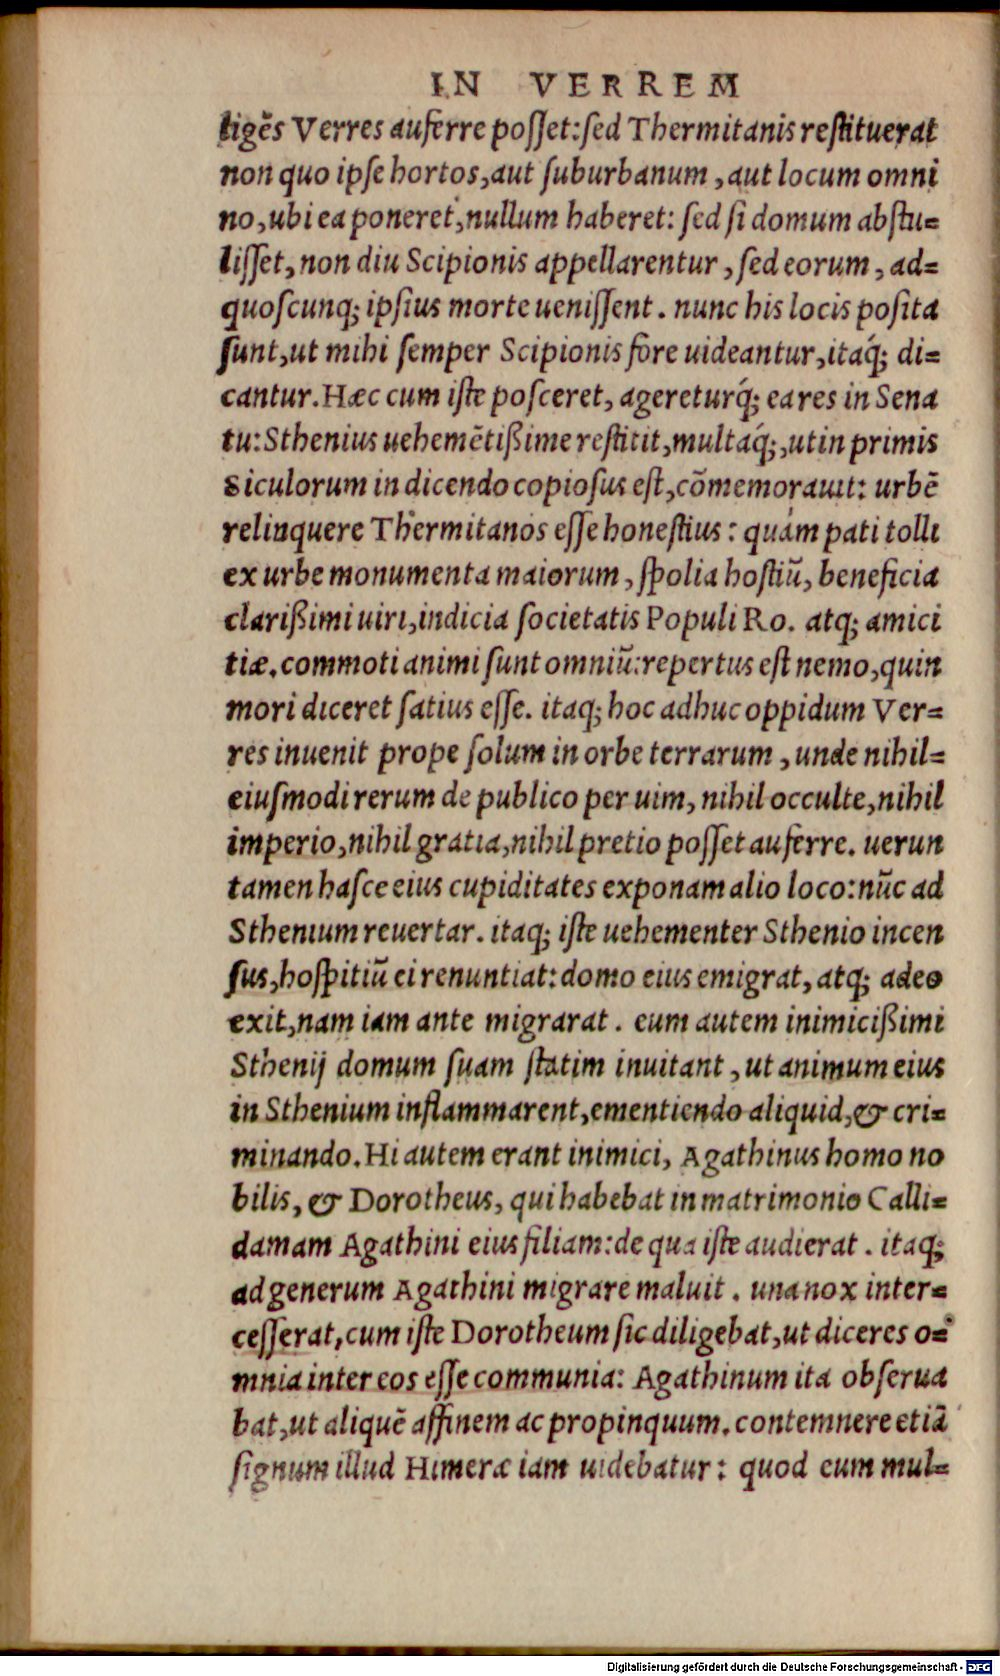 IN VERREM
ligẽs Verres auferre posſet:ſed Thermitanis reſtituerat
non quo ipſe hortos,aut ſuburbanum,aut locum omni
no,ubi ea poneret,nullum haberet: ſed ſi domum abſtu=
liſſet,non diu Scipionis appellarentur,ſed eorum,ad=
quoſcunq; ipſius morte ueniſſent. nunc his locis poſita
ſunt,ut mihi ſemper Scipionis fore uideantur,itaq́; di=
cantur.Hæc cum iſte poſceret, agereturq́; ea res in Sena
tu:Sthenius uehemẽtißime reſtitit,multaq́;,ut in primis
Siculorum in dicendo copioſus eſt,cõmemorauit: urbẽ
relinquere Thermitanos eſſe honeſtius: quám pati tolli
ex urbe monumenta maiorum, ſpolia hoſtiũ, beneficia
clarißimi uiri,indicia ſocietatis Populi Ro. atq; amici
tiæ.commoti animi ſunt omniũ:repertus eſt nemo,quin
mori diceret ſatius eſſe. itaq; hoc adhuc oppidum Ver=
res inuenit prope ſolum in orbe terrarum, unde nihil=
eiuſmodi rerum de publico per uim, nihil occulte,nihil
imperio,nihil gratia,nihil pretio poſſet auferre. uerun
tamen haſce eius cupiditates exponam alio loco:nũc ad
Sthenium reuertar. itaq; iſte uehementer Sthenio incen
ſus,hoſpitiũ ei renuntiat: domo eius emigrat, atq; adeo
exit,nam iam ante migrarat. eum autem inimicißimi
Sthenij domum ſuam ſtatim inuitant, ut animum eius
in Sthenium inflammarent,ementiendo aliquid,& cri=
minando.Hi autem erant inimici, Agathinus homo no
bilis, & Dorotheus, qui habebat in matrimonio Calli=
damam Agathini eius filiam:de qua iſte audierat. itaq;
ad generum Agathini migrare maluit. una nox inter=
ceſſerat,cum iſte Dorotheum ſic diligebat,ut diceres o=
mnia inter eos eſſe communia: Agathinum ita obſerua
bat,ut aliquẽ affinem ac propinquum.contemnere etiã
ſignum illud Himeræ iam uidebatur: quod eum mul=
Digitalisierung gefördert durch die Deutsche Forschungsgemeinschaft - DFG